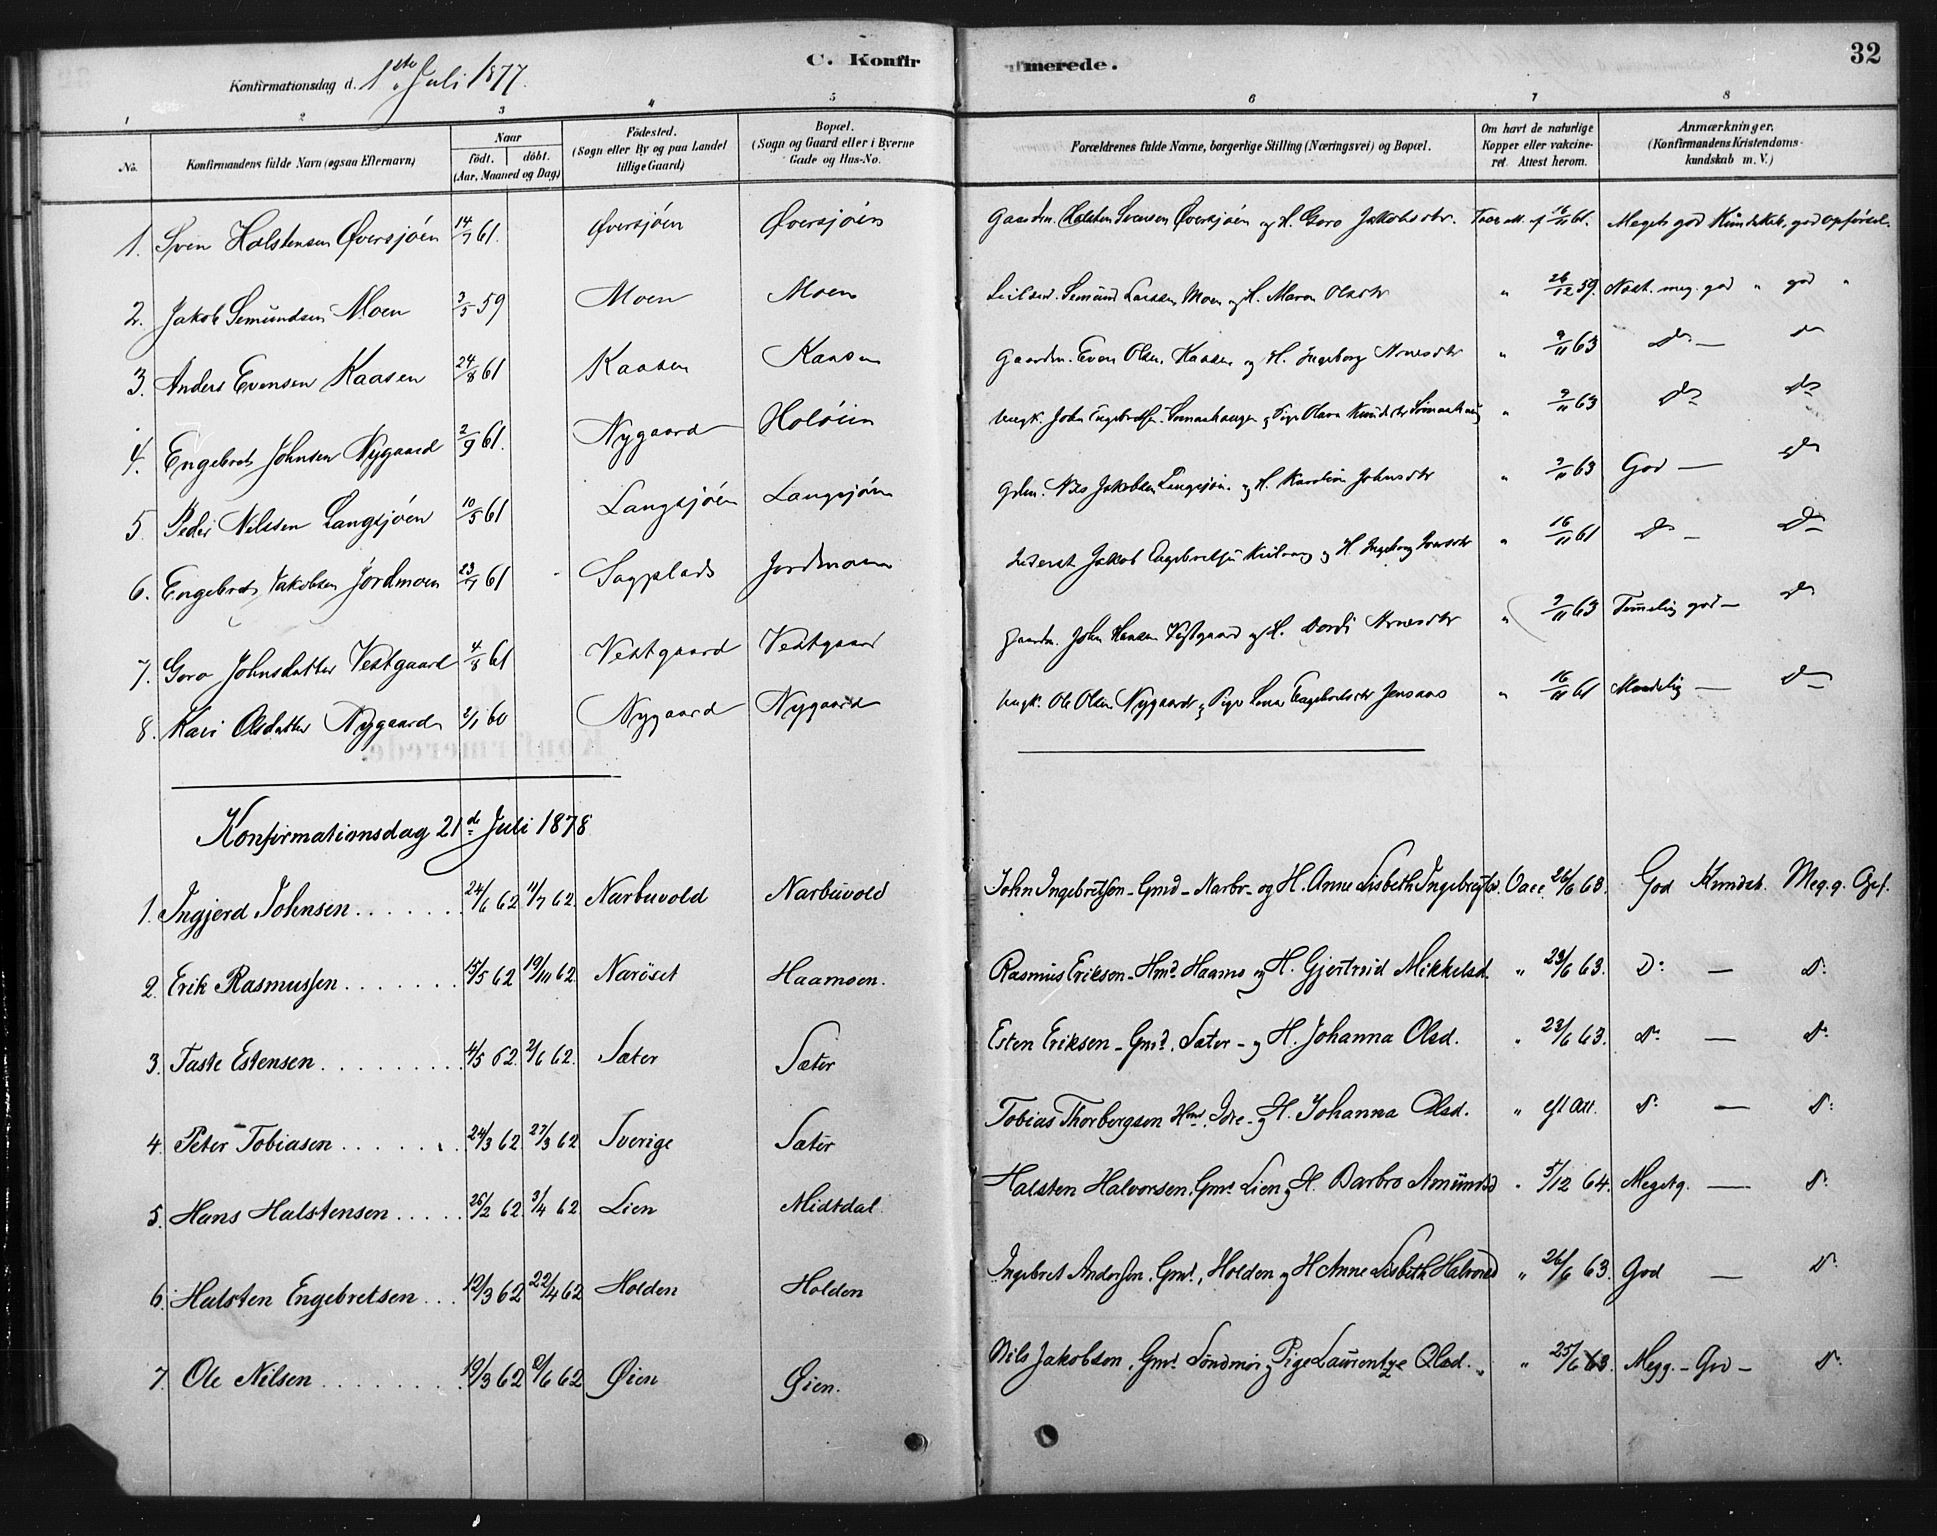 C. Konfirmerede. 32
Konfirmationsdag d. 1ste Juli 1877.
1 2 3 4 5 6 7 8
No. Konfirmandens fulde Navn (ogsaa Efternavn) Naar født. døbt. (Aar, Maaned og Dag) Fødested. (Sogn eller By og paa Landet tillige Gaard) Bopæl. (Sogn og Gaard eller i Byerne Gade og Hus-No. Forældrenes fulde Navne, borgerlige Stilling (Næringsvei) og Bopæl. Om havt de naturlige Kopper eller vakcineret. Attest herom. Anmærkninger. (Konfirmandens Kristendomskundskab m. V.)
1. Sven Halstensen Øversjøen 14/7 61. Øversjøen Øversjøen Gaardm. Halsten Svensen Øversjøen og H. Goro Jakobsdtr. 16/11 61. Meget god Kundskab, god opførsel.
2. Jakob Semundsen Moen 3/5 59 Moen Moen Semund Larsen Moen og H. Maren Olsdtr " 26/12 59. Næst. meg. god " god "
3. Anders Evensen Kaasen 24/8 61 Kaasen Kaasen Gaardm. Even Olsen Kaasen og H. Ingeborg Arnesdtr " 9/11 63 Do — Do
4. Engebret Johnsen Nygaard 2/9 61. Nygaard Holøien Ungk. John Engebretsen og Pige Olava Knudsdtr " 9/11 63 Do Do
5 Peder Nilssen Langsjøen 10/5 61 Langsjøen Langsjøen Gdm. Nils Jakobsen Langsjøen og H. Karoline Johnsdtr " 9/11 63 God — Do
6. Engebret Jakobsen Jordmoen 23/7 61 Sagplads Jordmoen Jakob Engebretsen og H. Ingeborg Iversdtr " 16/11 61 Do — Do
7. Goro Johnsdatter Vestgaard 4/8 61 Vestgaard Vestgaard Gaardm. John Hansen Vestgaard og H. Dordi Arnesdtr " 9/11 63 Temmelig god — Do
8. Kari Olsdatter Nygaard 2/1 60 Nygaard Nygaard Ungk. Ole Olsen Nygaard og Pige Lena Engebretsdtr Jensaas " 16/11 61 Maadelig — Do
Konfirmationsdag 21de Juli 1878
1. Ingjerd Johnsen 24/6 62 11/7 62. Narbuvold Narbuvold John Ingebretsen - Gmd - Narbv - og H. Anne Lisbeth Ingebregtsd. Vacc. 26/6 63. God Kundsk. Meg. g. Opf.
2. Erik Rasmussen 15/5 62 19/10 62. Narøset Haamoen. Rasmus Eriksen - Hmd. Haamo og H. Gjertruid Mikkelsd. " 23/6 63. Do — Do
3. Taste Estensen 4/5 62. 2/6 62. Sæter Sæter Esten Eriksen - Gmd. Sæter - og H. Johanna Olsd. " 23/6 63. Do — Do
4. Peter Tobiasen 24/3 62 27/3 62 Sverige Sæter Tobias Thorbergsen Hmd. Idre - og H. Johanna Olsd. " eft att. Do — Do
5. Hans Halstensen 26/2 62 3/4 62 Lien Midtdal Halsten Halvorsen. Gmd. Lien og H. Barbro Amundsd " 5/12 64. Megetg. — Do
6. Halsten Engebretsen 12/3 62 22/4 62 Holden Holden Ingebret Andersen. Gmd., Holden og H Anne Lisbeth Halvorsd " 26/6 63. God — Do
7. Ole Nilsen 19/3 62 9/6 62 Øien Øien. Nils Jakobsen, Gmd. Søndmør og Pige Laurentze Olsd. " 25/6 63. Megg. - God - Do